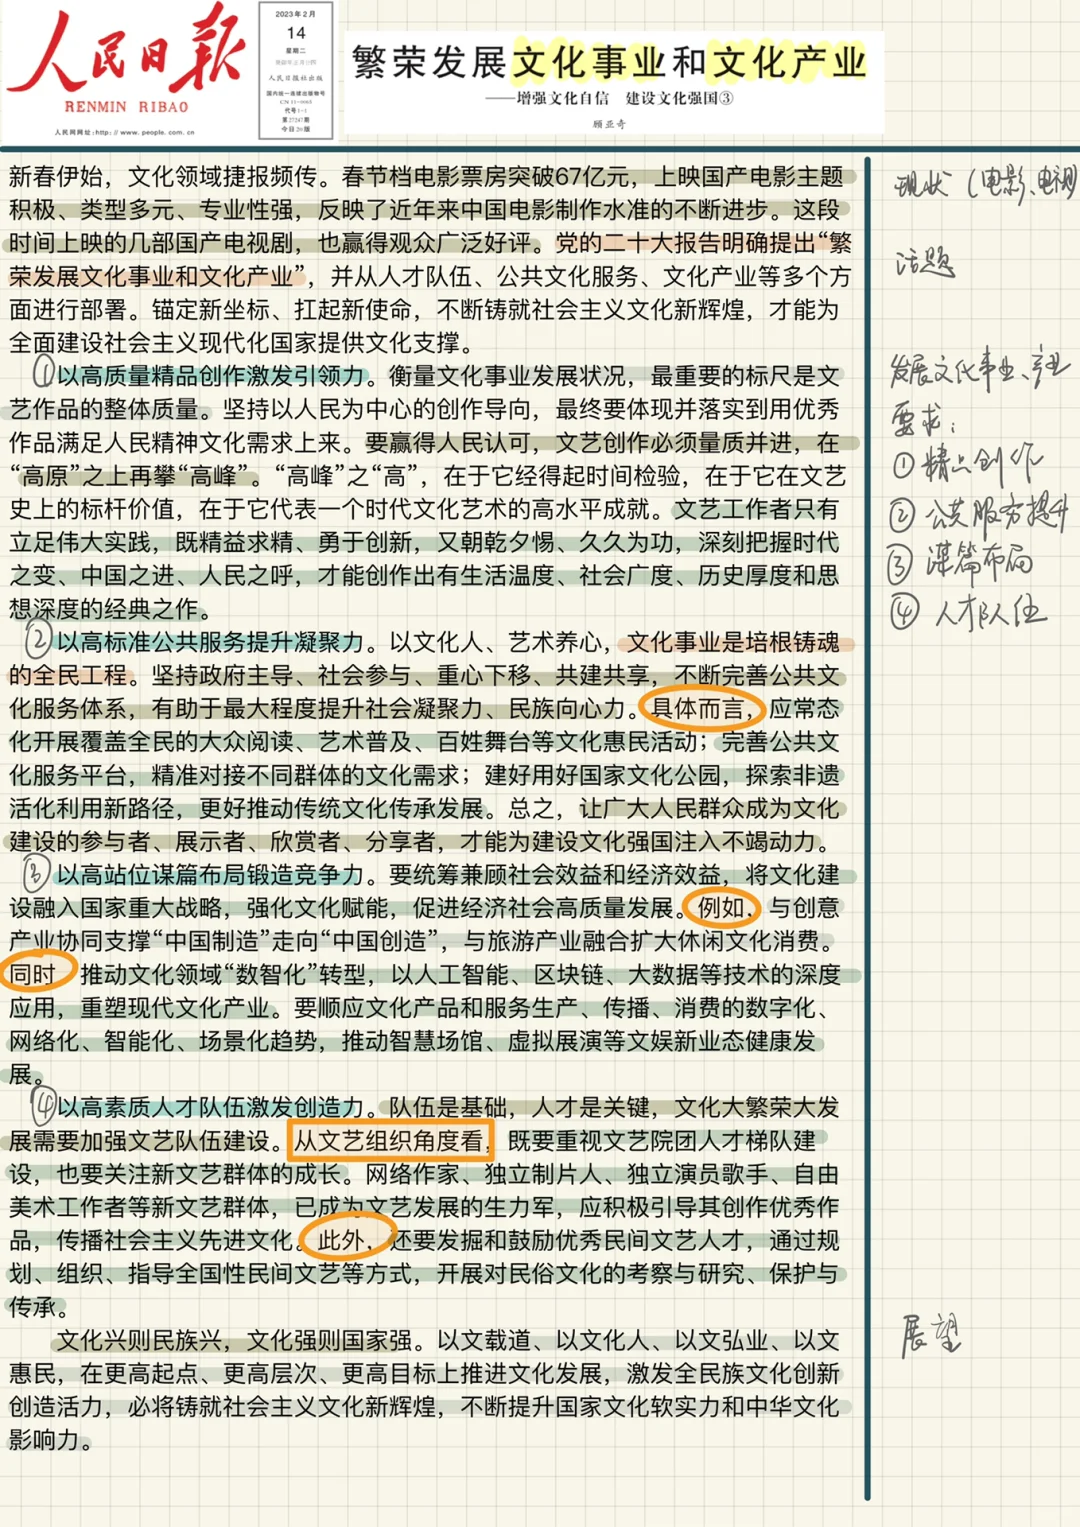 人民日报
RENMIN RIBAO
人民网网址:http://www.people.com.cn
2023年2月
14
星期二
人民日报社出版
国内统一连续出版物号
CN 11-0065
代号1-1
第27247期
今日20版
繁荣发展文化事业和文化产业
——增强文化自信 建设文化强国③
顾亚奇
新春伊始，文化领域捷报频传。春节档电影票房突破67亿元，上映国产电影主题
积极、类型多元、专业性强，反映了近年来中国电影制作水准的不断进步。这段
时间上映的几部国产电视剧，也赢得观众广泛好评。党的二十大报告明确提出“繁
荣发展文化事业和文化产业”，并从人才队伍、公共文化服务、文化产业等多个方
面进行部署。锚定新坐标、扛起新使命，不断铸就社会主义文化新辉煌，才能为
全面建设社会主义现代化国家提供文化支撑。
①以高质量精品创作激发引领力。衡量文化事业发展状况，最重要的标尺是文
艺作品的整体质量。坚持以人民为中心的创作导向，最终要体现并落实到用优秀
作品满足人民精神文化需求上来。要赢得人民认可，文艺创作必须量质并进，在
“高原”之上再攀“高峰”。“高峰”之“高”，在于它经得起时间检验，在于它在文艺
史上的标杆价值，在于它代表一个时代文化艺术的高水平成就。文艺工作者只有
立足伟大实践，既精益求精、勇于创新，又朝乾夕惕、久久为功，深刻把握时代
之变、中国之进、人民之呼，才能创作出有生活温度、社会广度、历史厚度和思
想深度的经典之作。
②以高标准公共服务提升凝聚力。以文化人、艺术养心，文化事业是培根铸魂
的全民工程。坚持政府主导、社会参与、重心下移、共建共享，不断完善公共文
化服务体系，有助于最大程度提升社会凝聚力、民族向心力。具体而言，应常态
化开展覆盖全民的大众阅读、艺术普及、百姓舞台等文化惠民活动；完善公共文
化服务平台，精准对接不同群体的文化需求；建好用好国家文化公园，探索非遗
活化利用新路径，更好推动传统文化传承发展。总之，让广大人民群众成为文化
建设的参与者、展示者、欣赏者、分享者，才能为建设文化强国注入不竭动力。
③以高站位谋篇布局锻造竞争力。要统筹兼顾社会效益和经济效益，将文化建
设融入国家重大战略，强化文化赋能，促进经济社会高质量发展。例如，与创意
产业协同支撑“中国制造”走向“中国创造”，与旅游产业融合扩大休闲文化消费。
同时，推动文化领域“数智化”转型，以人工智能、区块链、大数据等技术的深度
应用，重塑现代文化产业。要顺应文化产品和服务生产、传播、消费的数字化、
网络化、智能化、场景化趋势，推动智慧场馆、虚拟展演等文娱新业态健康发
展。
④以高素质人才队伍激发创造力。队伍是基础，人才是关键，文化大繁荣大发
展需要加强文艺队伍建设。从文艺组织角度看，既要重视文艺院团人才梯队建
设，也要关注新文艺群体的成长。网络作家、独立制片人、独立演员歌手、自由
美术工作者等新文艺群体，已成为文艺发展的生力军，应积极引导其创作优秀作
品，传播社会主义先进文化。此外，还要发掘和鼓励优秀民间文艺人才，通过规
划、组织、指导全国性民间文艺等方式，开展对民俗文化的考察与研究、保护与
传承。
文化兴则民族兴，文化强则国家强。以文载道、以文化人、以文弘业、以文
惠民，在更高起点、更高层次、更高目标上推进文化发展，激发全民族文化创新
创造活力，必将铸就社会主义文化新辉煌，不断提升国家文化软实力和中华文化
影响力。
现状（电影、电视
话题
发展文化事业、产业
要求：
①精品创作
②公共服务提升
③谋篇布局
④人才队伍
展望